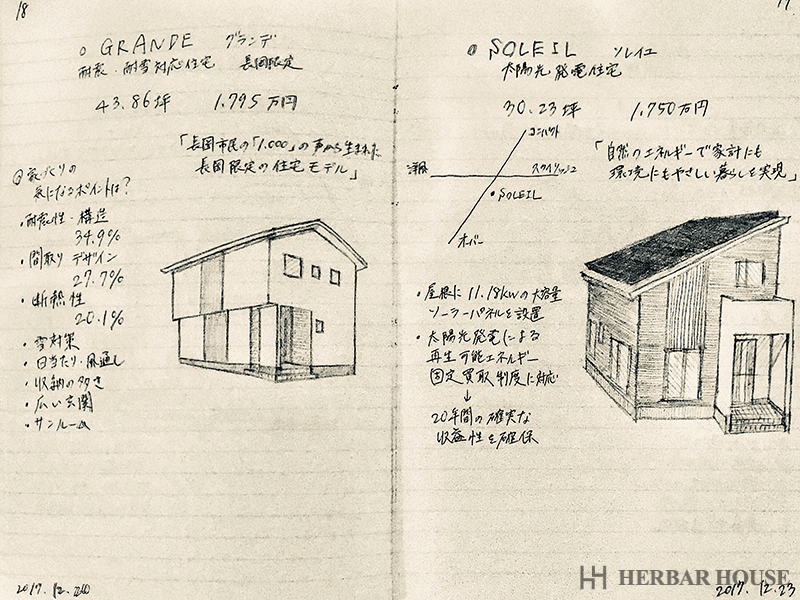 18
○ GRANDE グランデ
耐震・耐雪対応住宅 長岡限定
43.86坪 1,795万円
「長岡市民の「1,000」の声から生まれた
長岡限定の住宅モデル」
◎家づくりの
気になるポイントは?
・耐震性・構造
34.9%
・間取りデザイン
27.7%
・断熱性
20.1%
・雪対策
・日当たり・風通し
・収納の多さ
・広い玄関
・サンルーム
2017.12.
○ SOLEIL ソレイユ
太陽光発電住宅
30.23坪 1,750万円
コンパクト
スタイリッシュ
・SOLEIL
オーバー
「自然のエネルギーで家計にも
環境にもやさしい暮らしを実現」
・屋根に11.18kwの大容量
ソーラーパネルを設置
・太陽光発電による
再生可能エネルギー
固定買取制度に対応
↓
20年間の確実な
収益性を確保
HERBAR HOUSE
2017.12.23